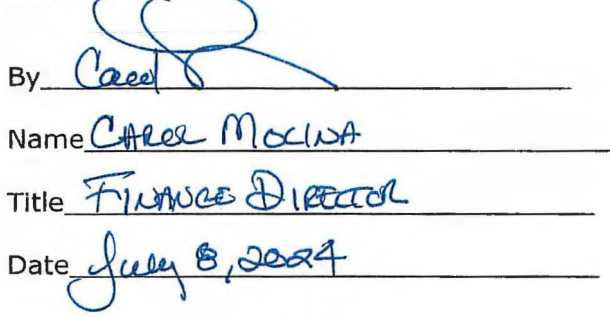 By Carol
Name CAROL MOLINA
Title FINANCE DIRECTOR
Date July 8, 2024